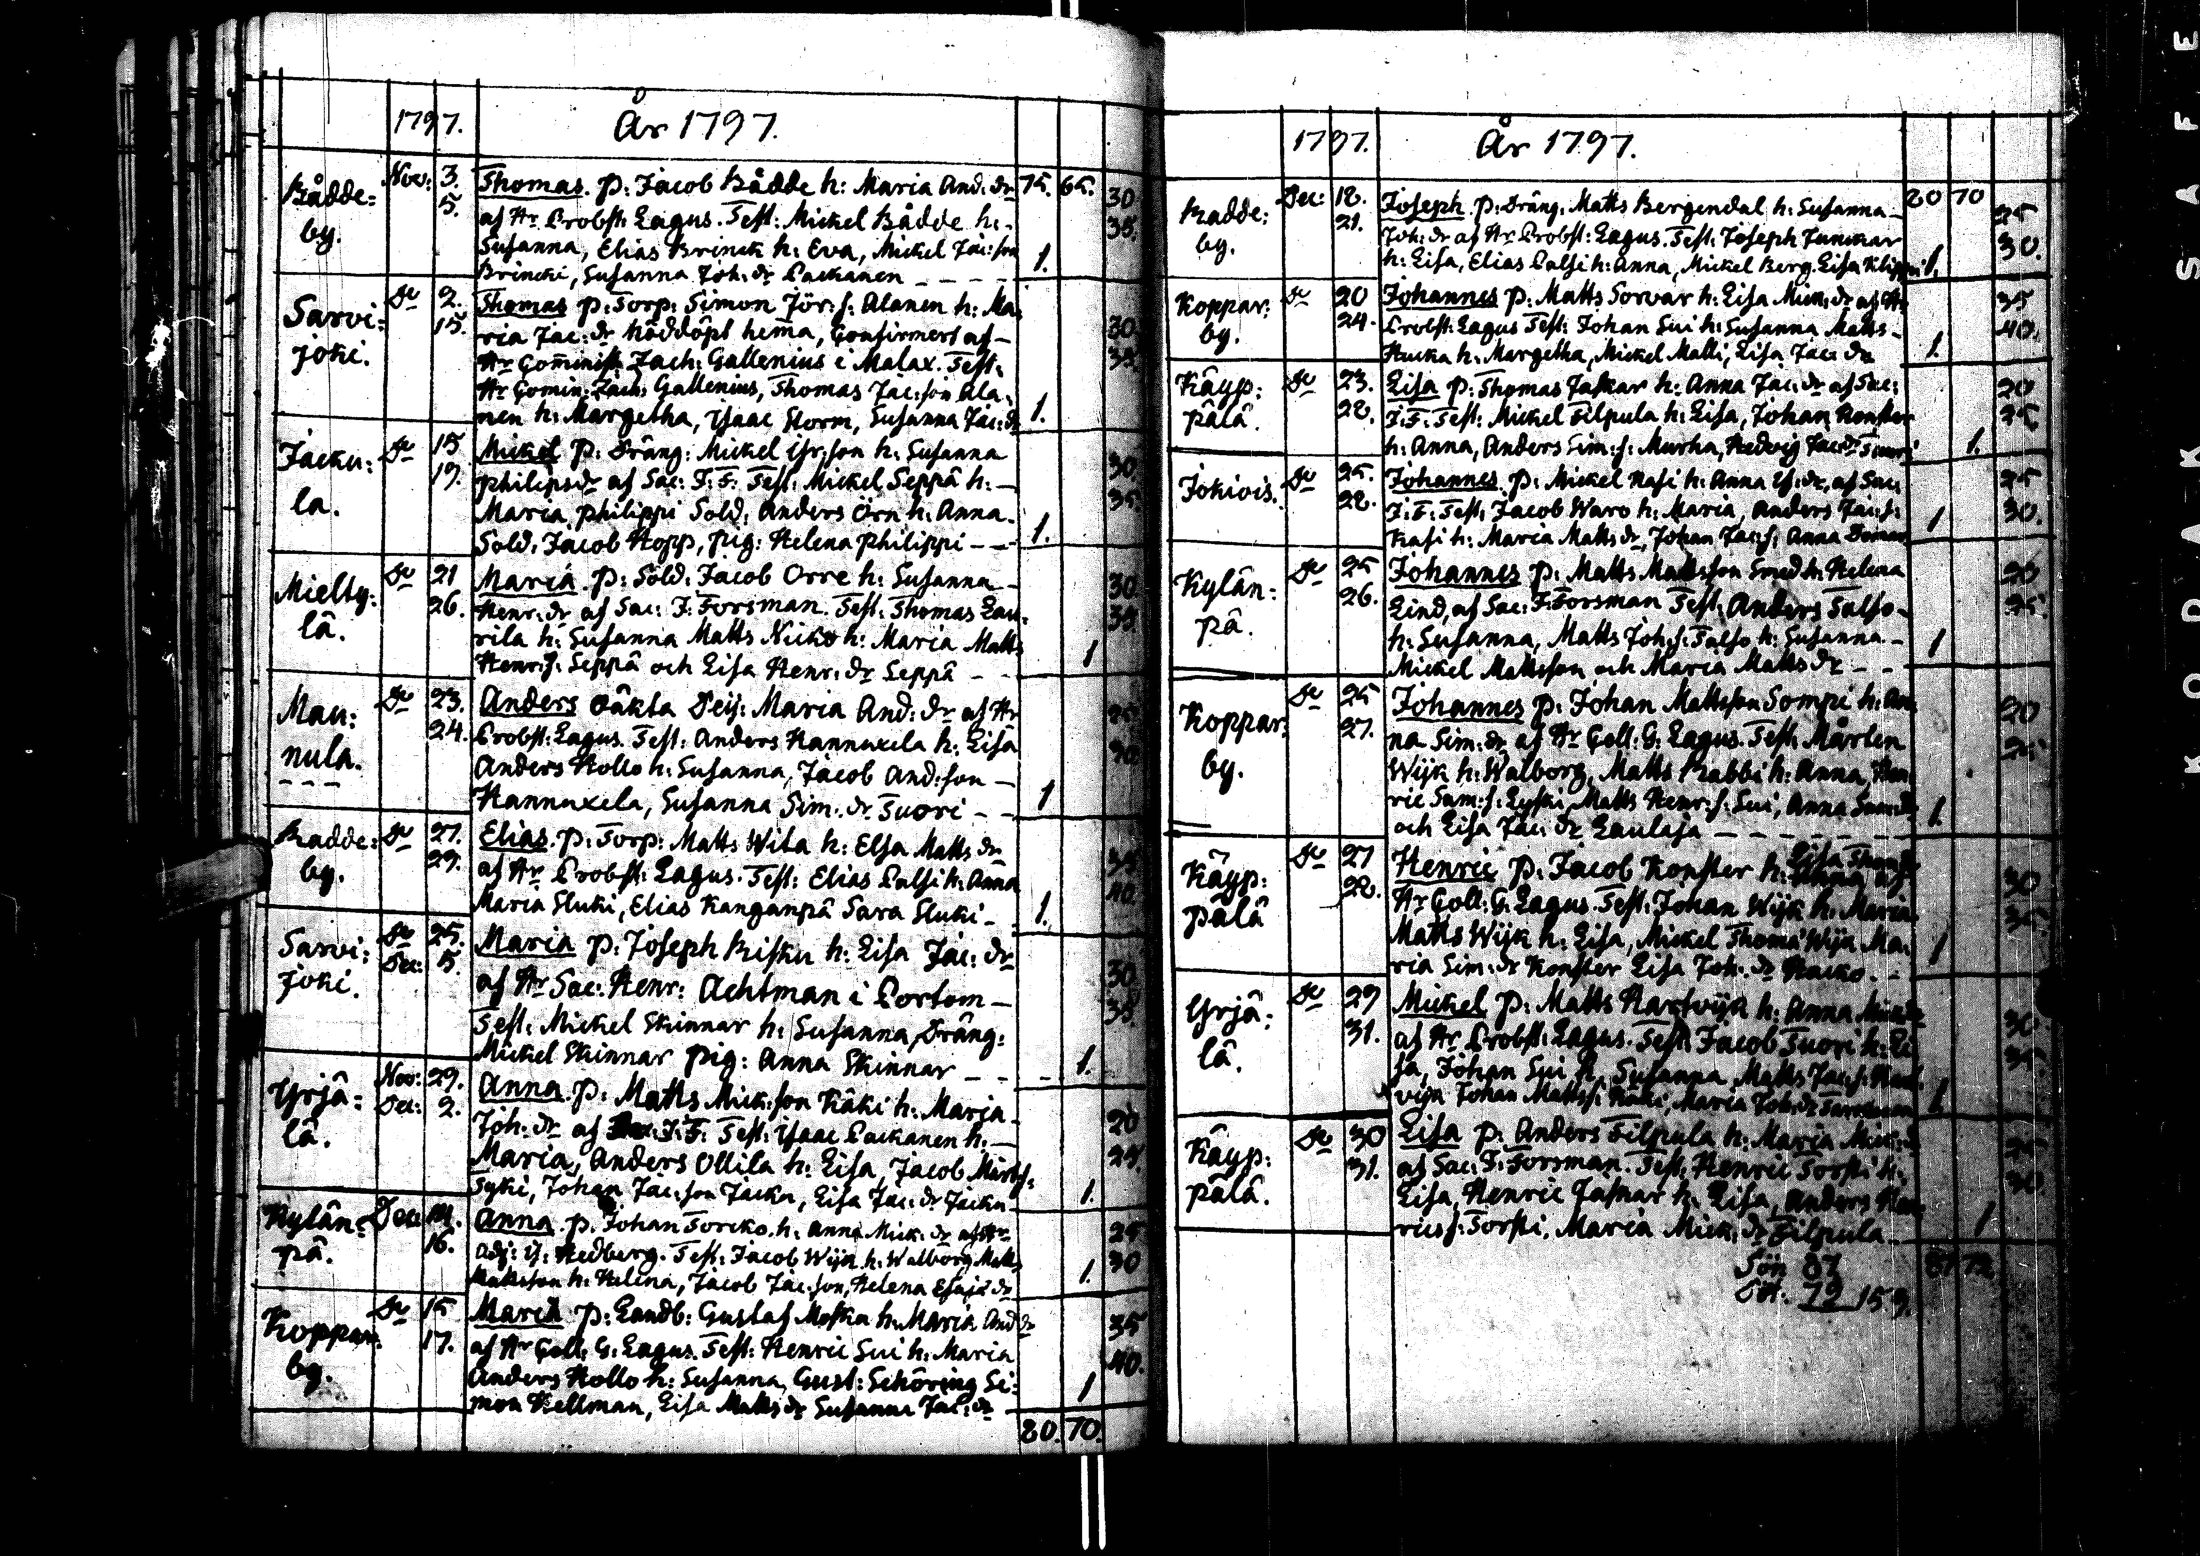 1797. År 1797.
Rådde: Nov: 3. Thomas. p: Jacob Rådde h: Maria And: dr 75. 65. 30
by. 5. af Hr Probst: Lagus. Test: Mickel Rådde h: 35.
Susanna, Elias Brinck h: Eva, Mickel Jac:son
Brincki, Susanna Joh: dr Packanen 1.
Sarvi: De 2. Thomas p: Torp: Simon Jör: s: Alanen h: Ma:
joki. 15. ria Jac: dr Nöddöpt hema, Confirmert af 30.
Hr Comminist: Zach: Gallenius i Malax. Test: 35.
Hr Comin: Zach: Gallenius, Thomas Jac:son Ala:
nen h: Margetha, Ysaac Storm, Susanna Jac: dr 1.
Jacku: De 15 Mickel p: Dräng: Mickel Yr:son h: Susanna 30.
la. 19. philipsdr af Sac: J. F. Test: Mickel Seppä h: 35.
Maria, philippi Sold: Anders Örn h: Anna.
Sold: Jacob Hopp, pig: Helena philippi 1.
Mielty: De 21 Maria. p: Sold: Jacob Orre h: Susanna 30.
lä. 26. Henr: dr af Sac: J. Forsman. Test: Thomas Lau: 35.
rila h: Susanna Matts Nicko h: Maria Matts
Henr: s: Seppä och Lisa Henr: dr Seppä 1
Man: De 23. Anders oäkta Peij: Maria And: dr af Hr
nula. 24. Probst: Lagus. Test: Anders Hannuxela h: Lisa
Anders Hollo h: Susanna, Jacob And:son
Hannuxela, Susanna Sim: dr Tuori 1
Radde: De 27. Elias. p: Torp: Matts Wita h: Elsa Matts dr 35
by. 29. af Hr Probst: Lagus. Test: Elias Palsi h: Anna 40.
Maria Sluki, Elias Kanganpä Sara Sluki 1.
Sarvi: De 25. Maria p: Joseph Risku h: Lisa Jac: dr
joki. Dec: 5. af Hr Sac: Henr: Achtman i Portom 30.
Test: Mickel Skinnar h: Susanna, Dräng: 35.
Mickel Skinnar pig: Anna Skinnar 1.
Yrjä: Nov: 29. Anna. p: Matts Mick:son Käki h: Maria
lä. Dec: 2. Joh: dr af J. F. Test: Ysaac Packanen h: 20
Maria, Anders Ollila h: Lisa, Jacob 25.
Syki, Johan Jac:son Jacku, Lisa Jac: dr Jacku 1.
Kylän: Dec 14. Anna. p: Johan Torcko. h: Anna Mick: dr af Hr 25
pä. 16. Adj: Is: Hedberg. Test: Jacob Wijk h: Walborg Matts 30
Mattsson h: Helena, Jacob Jac:son, Helena dr 1.
Koppar: De 15 Maria p: Landb: Gustaf h: Maria And dr 35
by. 17. af Hr Coll: G: Lagus. Test: Henric Sui h: Maria 40.
Anders Hollo h: Susanna, Gust: Schöring Si:
mon Hellman, Lisa Matts dr Susanna Jac: dr 1
80. 70.
1797. År 1797.
Radde: Dec: 18. Joseph. p: Dräng: Matts Bergendal h: Susanna 80 70
by. 21. Joh: dr af Hr Probst: Lagus. Test: Joseph Junckar 25
h: Lisa, Elias Palsi h: Anna, Mickel Berg. Lisa 1. 30.
Koppar: De 20 Johannes p: Matts Sorvar h: Lisa Mick: dr af Hr 35
by. 24. Probst: Lagus Test: Johan Sui h: Susanna Matts 40.
h: Margetha, Mickel Matti, Lisa Jac: dr 1.
Käyp: De 23. Lisa p: Thomas Jaskar h: Anna Jac: dr af Sac: 20
pälä. 28. J: F: Test: Mickel Filpula h: Lisa, Johan Konster 25
h: Anna, Anders Sim: s: Murha, Hedvig Jac: dr 1.
Jokiois. De 25. Johannes. p: Mickel Kasi h: Anna dr, af Sac: 25
28. J: F: Test: Jacob Waro h: Maria, Anders Jac: s: 30.
Kasi h: Maria Matts dr, Johan Jac: s: Anna 1
Kylän: De 25 Johannes p: Matts Mattsson Smed h: Helena
pä. 26. Lind, af Sac: J: Forsman Test: Anders Talso 25.
h: Susanna, Matts Joh: s: Talso h: Susanna
Mickel Mattsson och Maria Matts dr 1
Koppar: De 25 Johannes p: Johan Mattsson Sompi h: An 20
by. 27. na Sim: dr af Hr Coll: G: Lagus. Test: Mårten 25.
Wijk h: Walborg, Matts Rabbi h: Anna, Hen:
ric Sam: s: Matts Henr: s: Sui, Anna Sam: dr
och Lisa Jac: dr Laulaja 1.
Käyp: De 27 Henric p: Jacob Konster h: Lisa 30
pälä 28. Hr Coll: G: Lagus. Test: Johan Wijk h: Maria 35
Matts Wijk h: Lisa, Mickel Thomä Wijk Ma:
ria Sim: dr Konster Lisa Joh: dr Hacko. 1
Yrjä: De 29 Mickel p: Matts Hartvijk h: Anna 30
lä. 31. af Hr Probst: Lagus. Test: Jacob Tuori h: Li 35
sa, Johan Sui h: Susanna Matts Jac: s:
vijk Johan Mattss: Käki, Maria Joh: dr 1.
Käyp: De 30 Lisa p: Anders Filpula h: Maria Mick: 25
pälä. 31. af Sac: J: Forsman. Test: Henric Torsti h: 30.
Lisa, Henric Jaskar h: Lisa, Anders Hen:
rics s: Torsti, Maria Mick: dr Filpula 1
Sön 87 87 72
Döt: 72 159.
KODAK SAFE